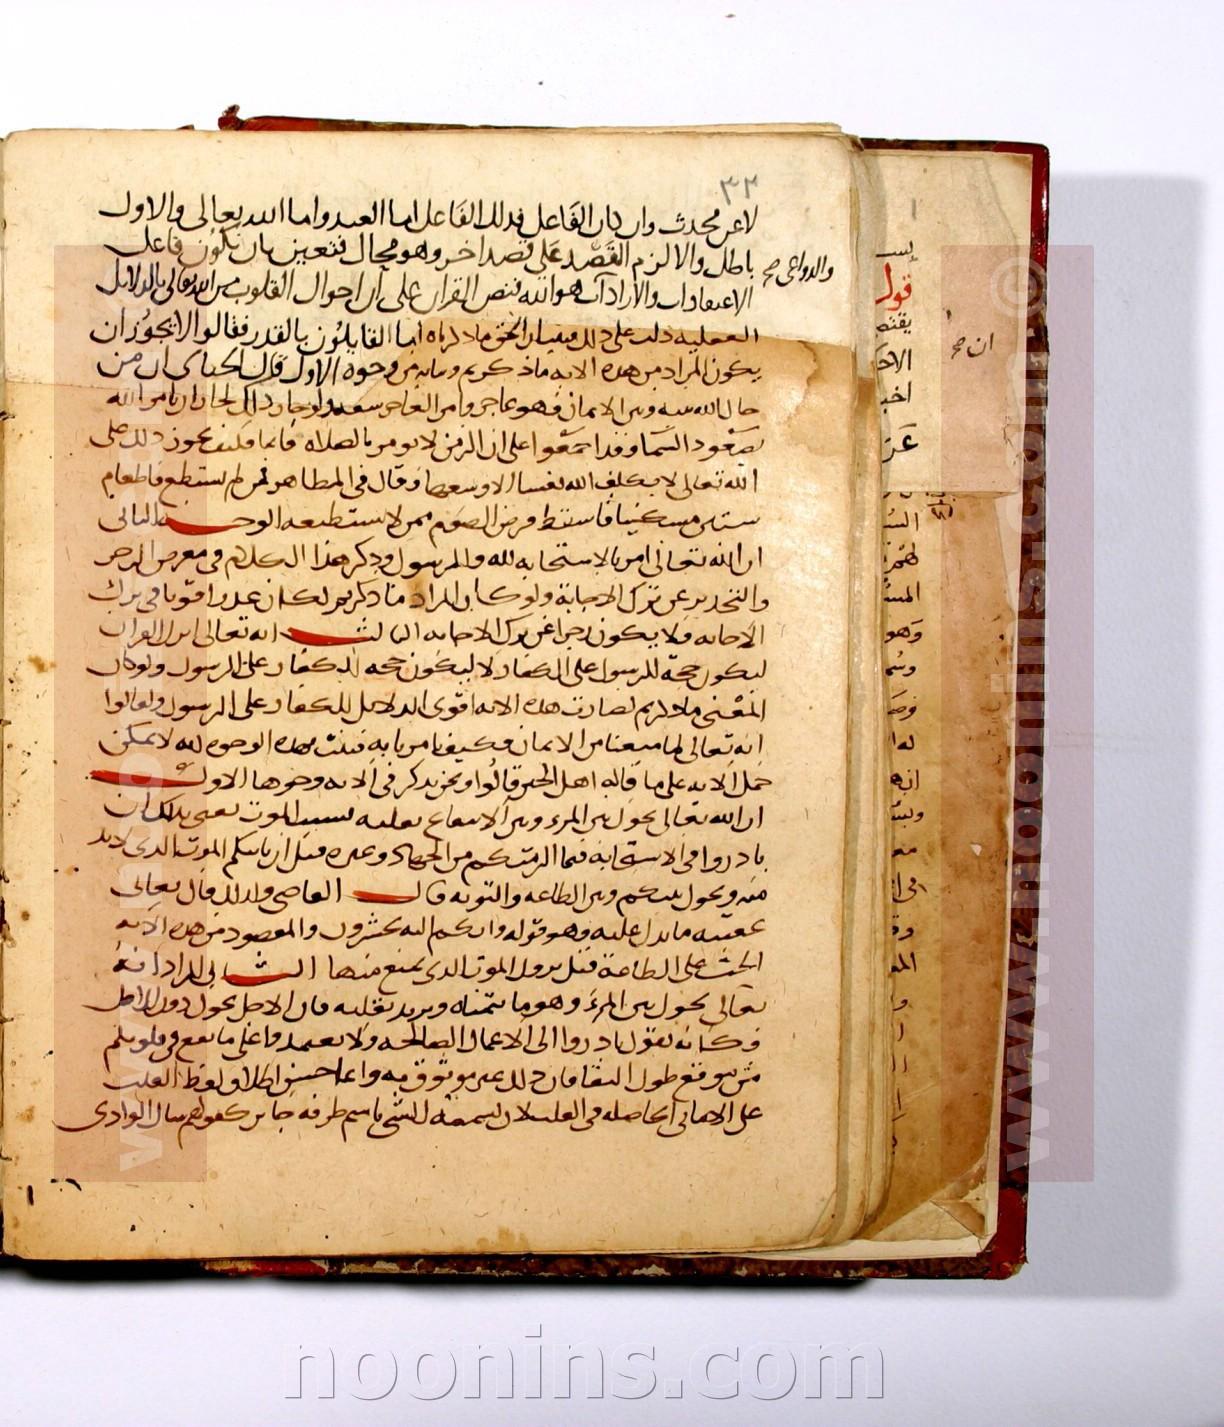 ٣٢
لا عن محدث وان كان الفاعل فذلك الفاعل اما العبد واما الله تعالى والاول
باطل والا لزم القصد على قصد اخر وهو محال فتعين بان يكون فاعل
والدواعى صح
الاعتقادات والارادات هو الله فنص القران على ان احوال القلوب من الله تعالى بالدلايل
العقليه دلت على ذلك فتبت ان الحق ما ذكرناه اما القايلون بالقدر فقالوا لا يجوز ان
يكون المراد من هذه الايه ما ذكرتم وبيانه من وجوه الاول قال الجباى ان من
حال الله بينه وبين الايمان فهو عاجز وامر العاجز سفه ولو جاز ذلك لجاز ان يامر الله
بصعود السما وقد اجمعوا على ان الزمن لا يومر بالصلاه قايما فكيف يجوز ذلك على
الله تعالى لا يكلف الله نفسا الا وسعها وقال فى المظاهر فمن لم يستطع فاطعام
ستين مسكينا فاسقط فرض الصوم عمن لا يستطيعه الوجه الثانى
ان الله تعالى امر بالاستجابه لله وللرسول وذكر هذا الكلام فى معرض الزجر
والتحذير عن ترك الاجابة ولو كان المراد ما ذكرتم لكان عذرا قويا فى ترك
الاجابه فلا يكون زجرا عن ترك الاجابه الثالث انه تعالى انزل القران
ليكون حجة للرسول على الكفار لا ليكون حجه للكفار على الرسول ولو كان
المعنى ما ذكرتم لصارت هذه الايه اقوى الدلايل للكفار على الرسول ولقالوا
انه تعالى لما منعنا من الايمان فكيف يامرنا به فثبت بهذه الوجوه انه لا يمكن
حمل الايه على ما قاله اهل الجبر قالوا ونحن نذكر فى الايه وجوها الاول
ان الله تعالى يحول بين المرء وبين الانتفاع بقلبه بسبب الموت يعنى بذلك ان
بادروا فى الاستجابه فيما الزمتكم من الجهاد وغيره قبل ان ياتيكم الموت الذى لا بد
منه ويحول بينكم وبين الطاعه والتوبه قال القاضى ولذلك قال تعالى
عقيبه ما يدل عليه وهو قوله وانكم اليه تحشرون والمقصود من هذه الايه
الحث على الطاعة قبل نزول الموت الذى يمنع منها الثانى المراد انه
تعالى يحول بين المرء وهو ما يتمناه ويريد بقلبه فان الاجل يحول دون الامل
فكانه يقول بادروا الى الاعمال الصالحه ولا تعتمدوا على ما يقع فى قلوبكم
من توقع طول البقا فان ذلك غير موثوق به وانما حسن اطلاق لفظ القلب
على الامانى الحاصله فى القلب لان تسمية الشى باسم ظرفه جايز كقولهم سال الوادى
ان صح
قول
noonins.com
www.noonins.com